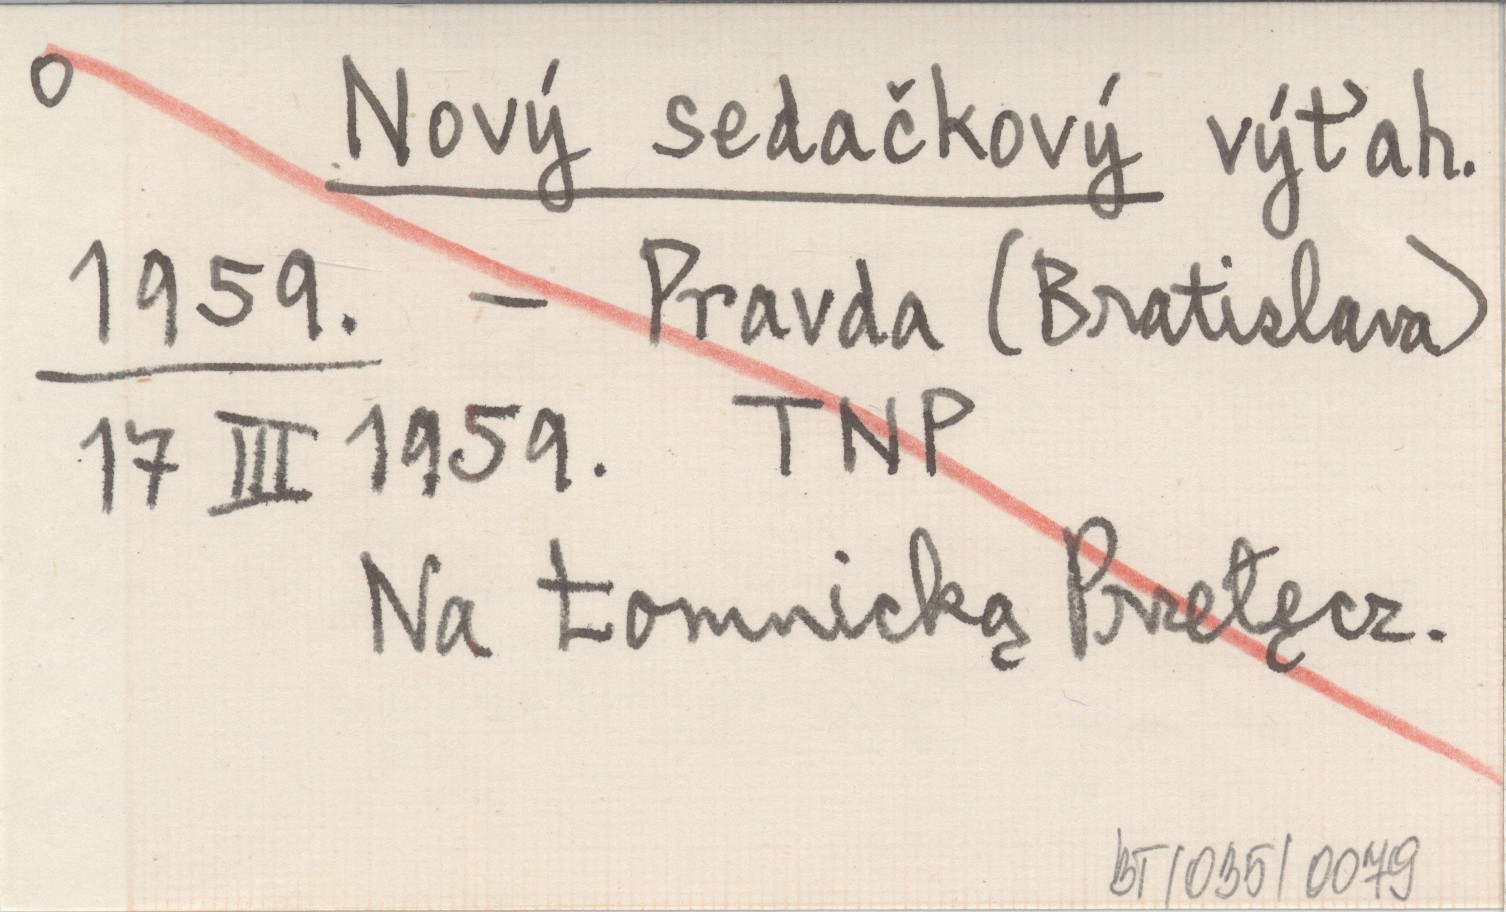 o Nový sedačkový výťah.
1959. - Pravda (Bratislava)
17 III 1959. TNP
Na Łomnicką Przełęcz.
BT/035/0079